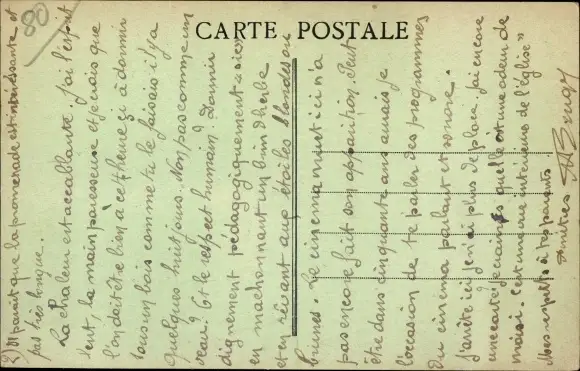 80
CARTE POSTALE
2) Il paraît que la promenade est intéressante et
pas très longue.
La chaleur est accablante j'ai l'esprit
lent, la main paresseuse et je vois que
l'on doit être bien à cette heure-çi à dormir
sous un bois comme tu le faisais il y a
quelques huit jours. Non pas comme un
veau? Et le respect humain? Dormir
dignement pédagogiquement
en machonnant un brin d'herbe
et en rêvant aux étoiles blondes ou
brunes. Le cinéma muet ici n'a
pas encore fait son apparition. Peut
être dans cinquante ans aurais je
l'occasion de te parler des programmes
du cinéma parlant et sonore.
J'arrête ici je n'ai plus de place. J'ai encore
une carte qu'elle est une odeur de
moisi. C'est une vue intérieure de l'église"
Mes respects à tes parents.
Amitiés